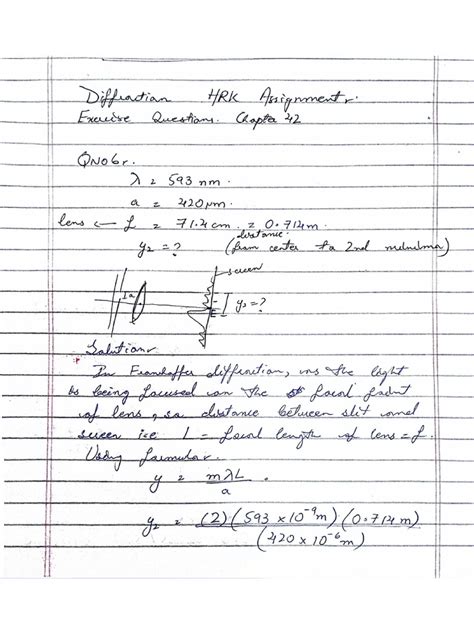 Diffraction HRK Assignment.
Exercise Questions. Chapter 42
QNo6.
λ = 593 nm.
a = 420 μm.
lens ← f = 71.4 cm = 0.714 m
distance
y₂ = ? (from center to 2nd minima)
screen
a
y₂ = ?
Solution
In Fraunhoffer diffraction, as the light
is being focused on the focal point
of lens, so distance between slit and
screen i.e. L = focal length of lens = f.
Using formula.
y = mλL / a
y₂ = (2)(593 × 10⁻⁹ m)(0.714 m) / (420 × 10⁻⁶ m)